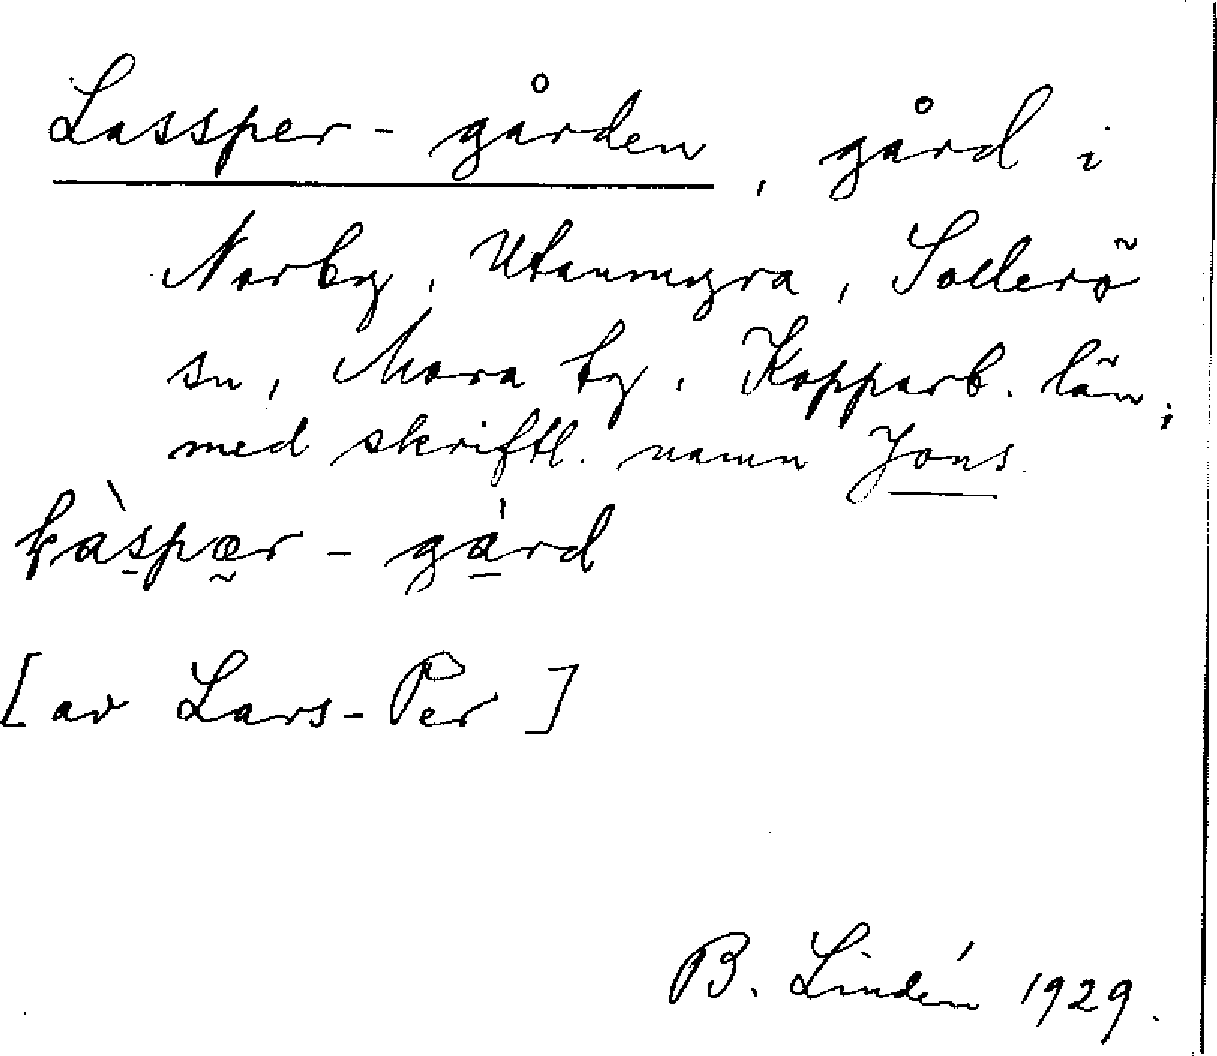 Lassper-gården, gård i
Norby, Utanmyra, Sollerö
sn, Mora tg. Kopparb. län,
med skriftl. namn Jons
làspær-gård
[av Lars-Per]
B. Lindén 1929.